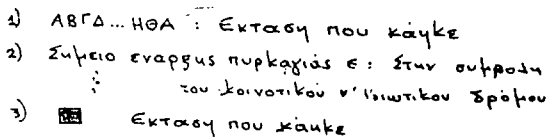 1) ΑΒΓΔ...ΗΘΑ : Εκταση που κάηκε
2) Σημειο εναρξης πυρκαγιάς ε : Στην συμβολη
του κοινοτικού ν' ιδιωτικου δρόμου
3) Εκταση που κάηκε